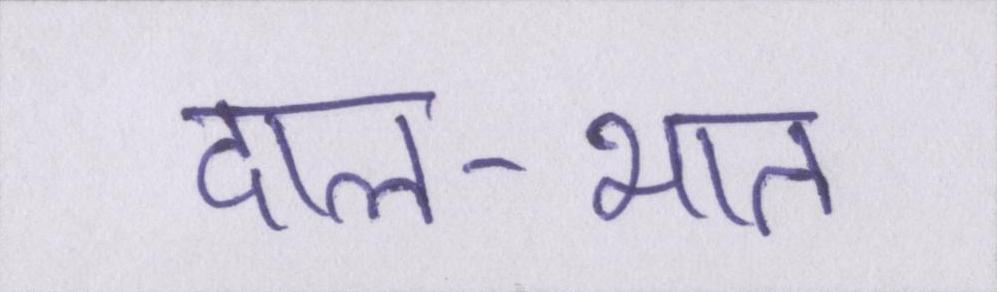 दाल-भात